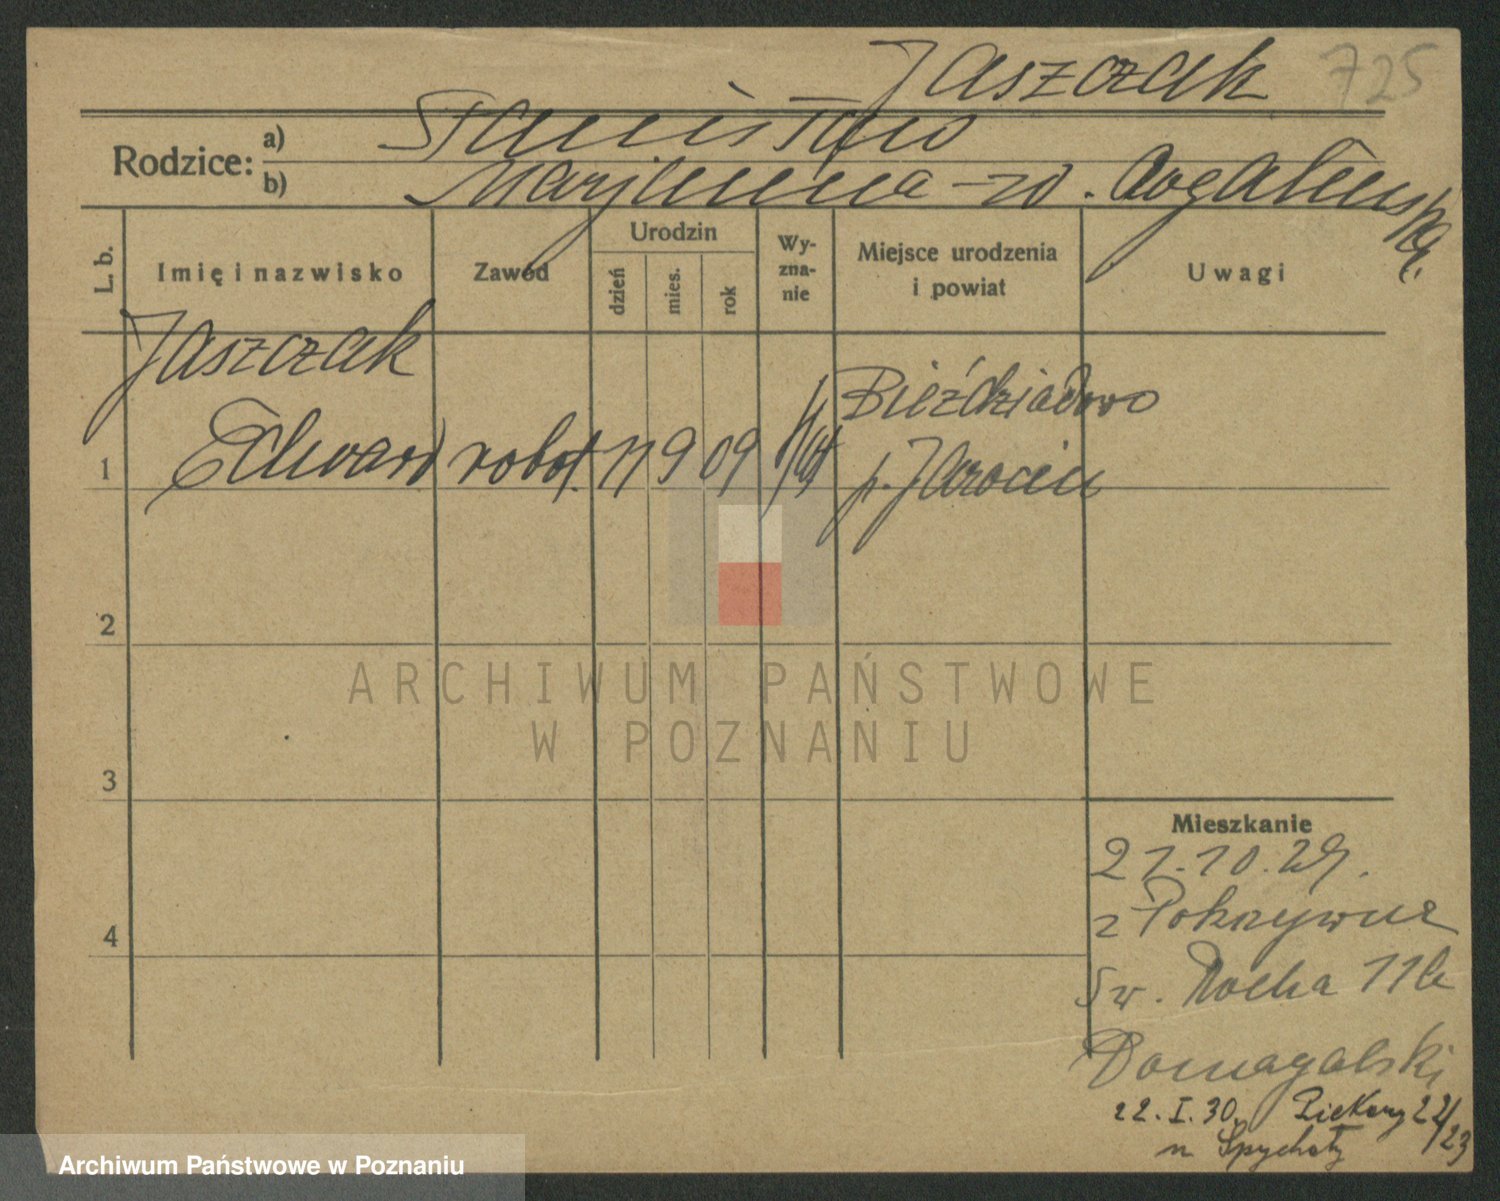 Jaszczak 725
Rodzice: a) Stanisław
b) Maryanna - z d. Rogalińska.
L. b.
Imię i nazwisko
Zawód
Urodzin
dzień
mies.
rok
Wy-
zna-
nie
Miejsce urodzenia
i powiat
Uwagi
Jaszczak
1 Edward robot. 11 9 09
Bieździadowo
p. Jarocin
2
3
4
ARCHIWUM PAŃSTWOWE
W POZNANIU
Mieszkanie
21.10.29.
z Pokrzywna
Św. Rocha 11b
Domagalski
22. I. 30. Piekary 22/23
u Spychały
Archiwum Państwowe w Poznaniu